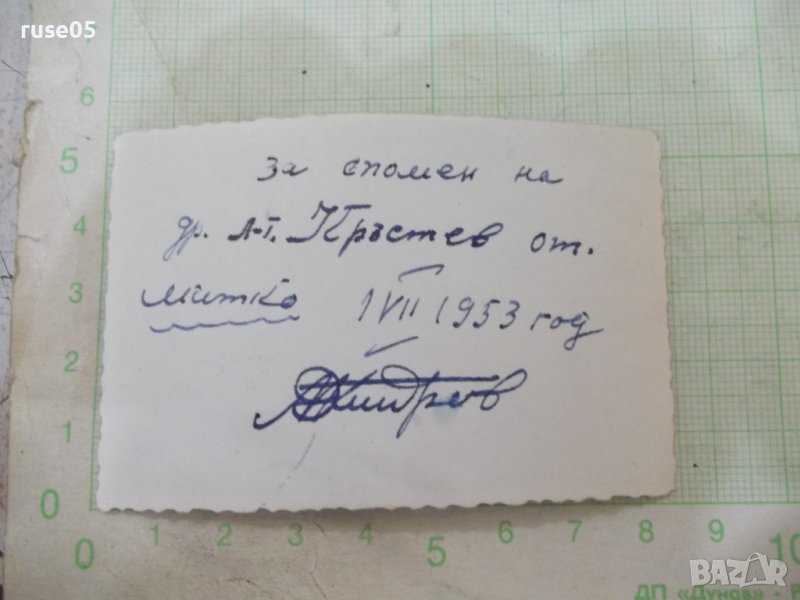 ruse05
за спомен на
др. л-т. Кръстев от.
митко 1 VII 1953 год
7
6
5
4
3
2
1
0
0 1 2 3 4 5 6 7 8 9 10
ДП «Дунав» -
BAZAR